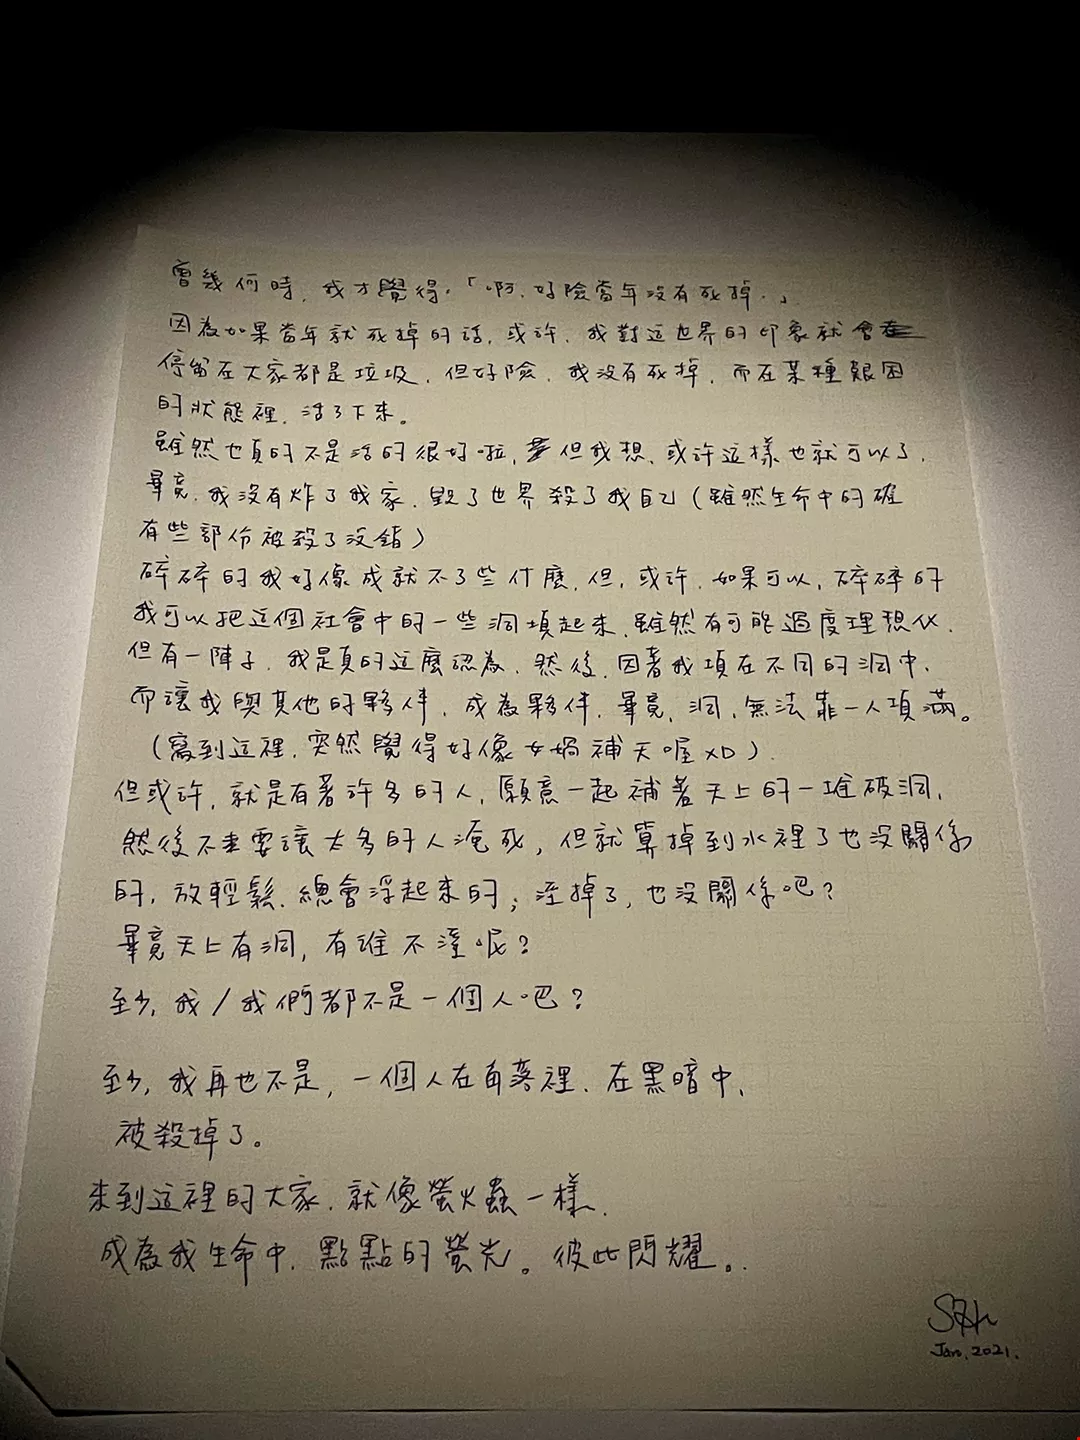 曾幾何時，我才覺得，「啊，好險當年沒有死掉。」
因為如果當年就死掉的話，或許，我對這世界的印象就
停留在大家都是垃圾，但好險，我沒有死掉，而在某種艱困
的狀態裡，活了下來。
雖然也真的不是活的很好啦，但我想，或許這樣也就可以了，
畢竟，我沒有炸了我家，毀了世界殺了我自己（雖然生命中的確
有些部份被殺了沒錯）
碎碎的我好像成就不了些什麼，但，或許，如果可以，碎碎的
我可以把這個社會中的一些洞填起來，雖然有可能過度理想化，
但有一陣子，我是真的這麼認為，然後，因著我填在不同的洞中，
而讓我與其他的夥伴，成為夥伴，畢竟，洞，無法靠一人填滿。
（寫到這裡，突然覺得好像女媧補天喔XD）
但或許，就是有著許多的人，願意一起補著天上的一堆破洞，
然後不要讓太多的人淹死，但就算掉到水裡了也沒關係
的，放輕鬆，總會浮起來的；溼掉了，也沒關係吧？
畢竟天上有洞，有誰不溼呢？
至少，我／我們都不是一個人吧？
至少，我再也不是，一個人在角落裡，在黑暗中，
被殺掉了。
來到這裡的大家，就像螢火蟲一樣，
成為我生命中，點點的螢光。彼此閃耀。
Jan. 2021.